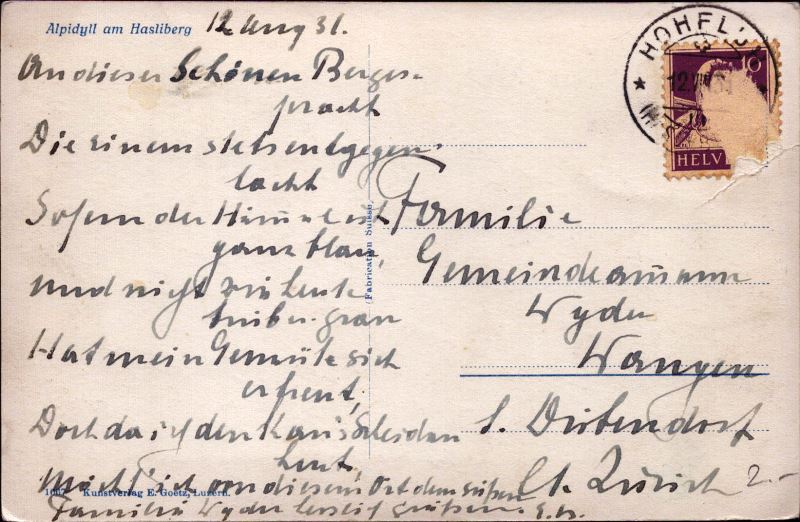 Alpidyll am Hasliberg
12 Aug 31.
An dieser Schönen Berges-
pracht
Die einem stets entgegen
lacht
Sofern der Himmel ist
ganz blau,
und nicht wie heute
trüber grau
Hat mein Gemüte sich
erfreut,
Doch da ich den
heut,
Möcht' ich von diesem Ort dem süßen
Familie Wyder herzlich grüssen. E.W.
1007 Kunstverlag E. Goetz, Luzern.
(Fabrication Suisse)
HOHFLUH
12.VIII.31
10
HELV
Familie
Gemeindeammann
Wyder
Wangen
b. Dübendorf
Ct. Zürich
2.-